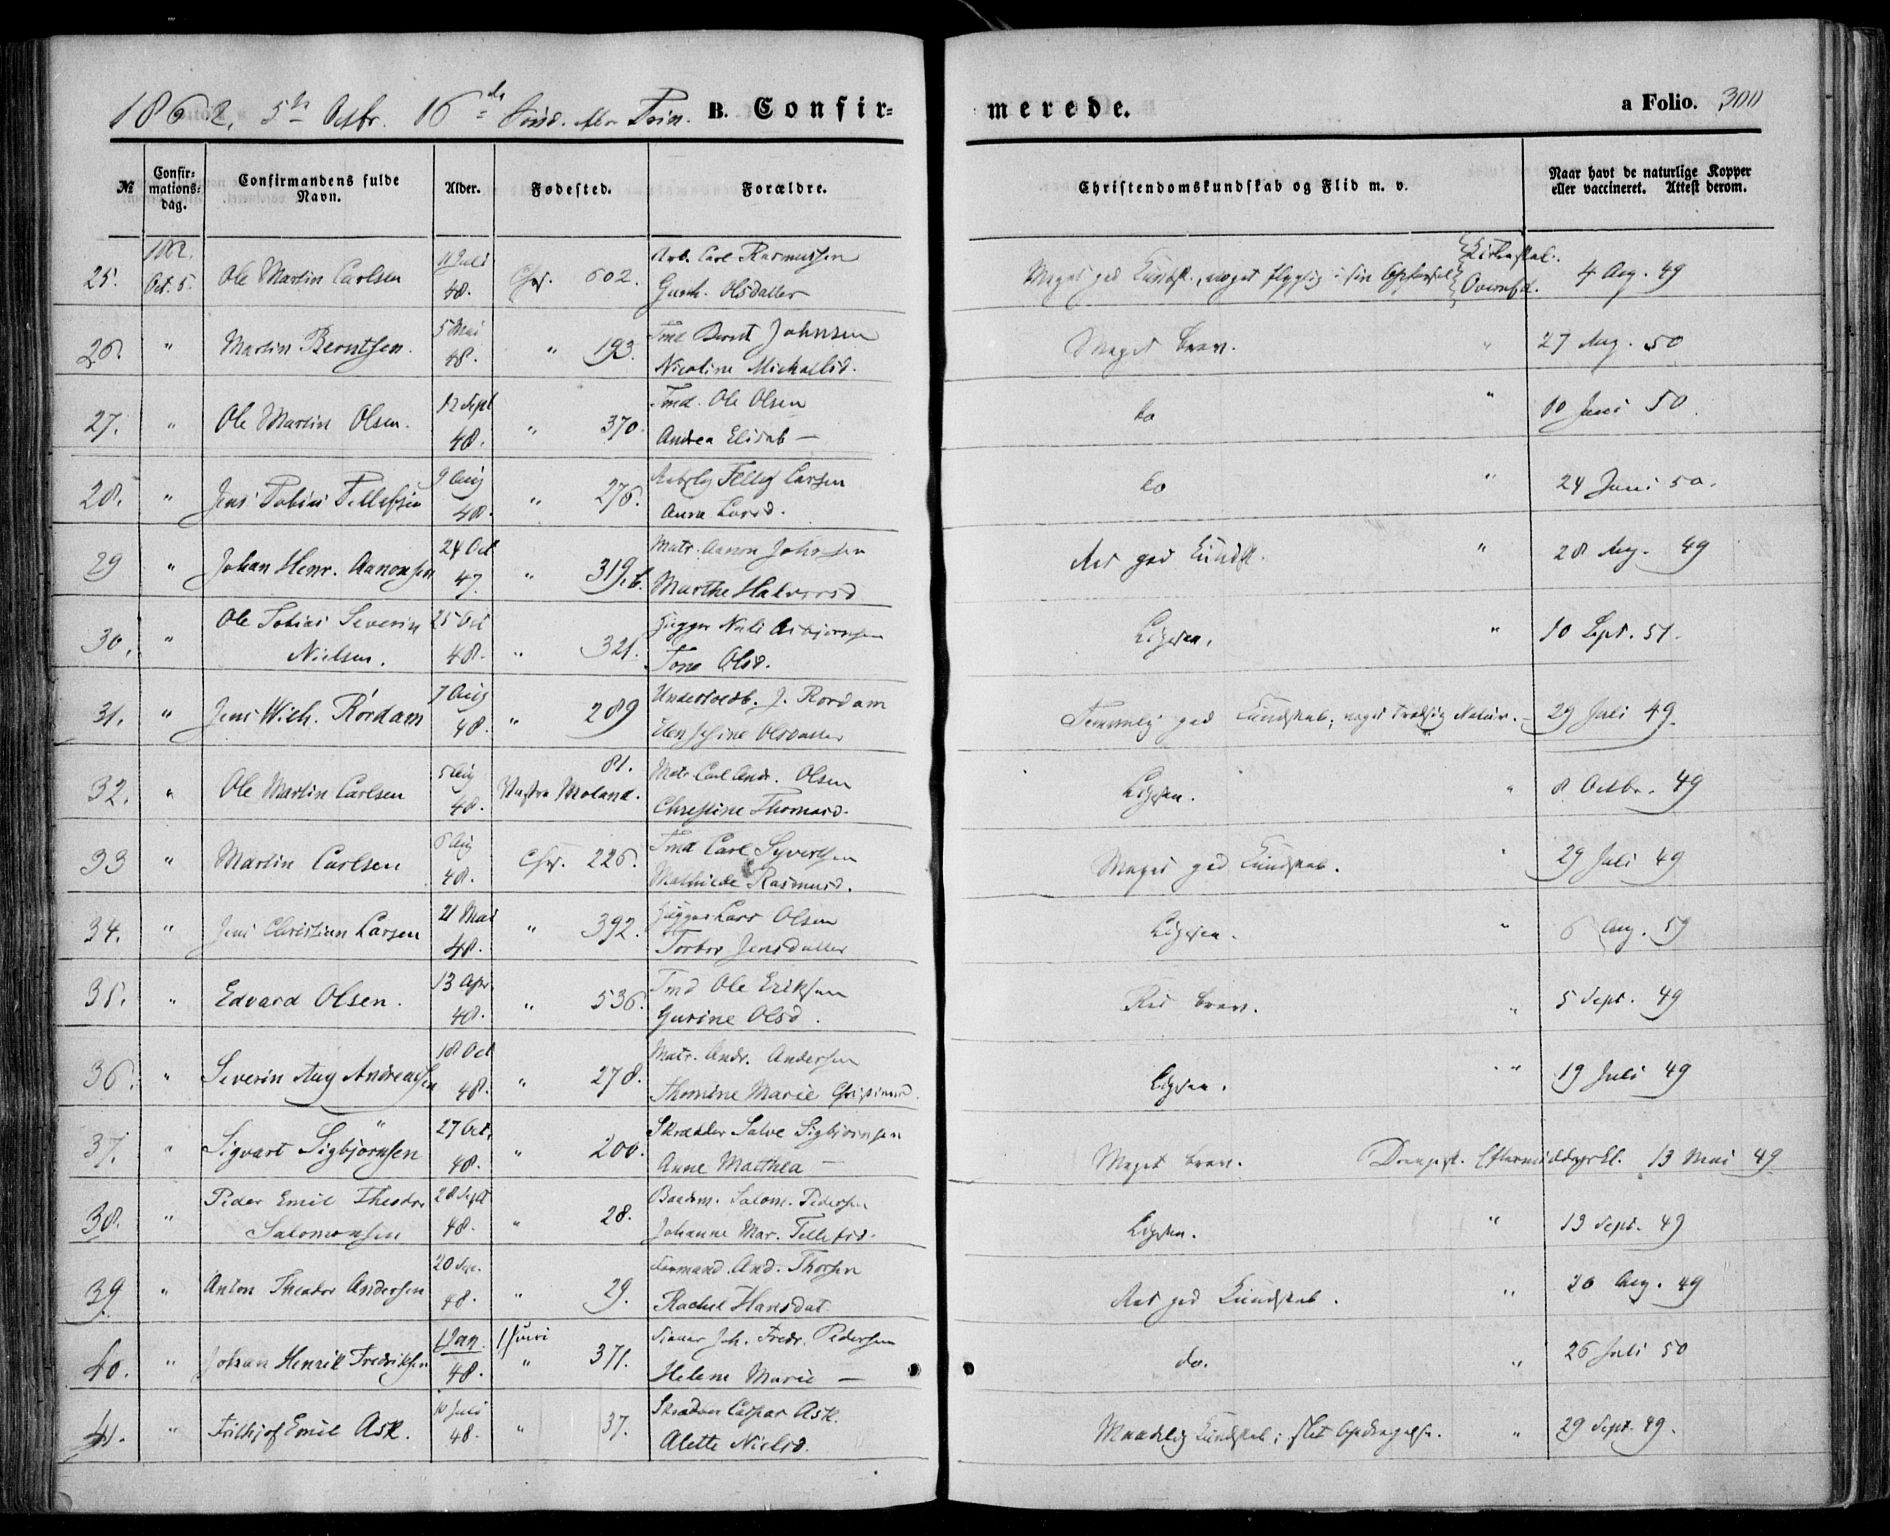 1862. 5te Octbr. 16de Sønd. efter Trin. B. Confirmerede. a Folio. 300
№ Confirmations-dag. Confirmandens fulde Navn. Alder. Fødested. Forældre. Christendomskundskab og Flid m. v. Naar havt de naturlige Kopper eller vaccineret. Attest derom.
25. 1862. Oct. 5. Ole Martin Carlsen 48. Chr. 602. Arb. Carl Rasmussen
Olsdatter Meget god Kundsk., noget i sin 4 Aug. 49
26. " Martin Berntsen. 5 Mai 48. " 193. Tmd Bernt Johnsen
Nicoline Michaelsd. Meget brav. " 27 Aug. 50
27. " Ole Martin Olsen. 12 Sept 48. " 370 Tmd. Ole Olsen
Andrea Elisab — do " 10 Juni 50.
28. " Jens Tobias Tellefsen 9 Aug 48. " 276. Tellef Larsen
Anne Larsd. do " 24 Juni 50.
29 " Johan Henr. Aanonsen 24 Oct 47. " 319.b. Matr. Aanon Johnsen
Marthe Halvorsd god Kundsk. " 28 Aug. 49
30. " Ole Tobias Severin Nielsen. 25 Oct 48. " 321. Nils Asbjørnsen
Tone Olsd. Ligesaa. " 10 Sept. 51.
31. " Jens Wilh. Rördam 7 Aug 48. " 289 J. Rordam
Olsdatter Temmelig god Kundskab; noget Natur. 29 Juli 49.
32. " Ole Martin Carlsen 5 Aug 48. Østre Moland. 81. Matr Carl Andr. Olsen
Christine Thomasd. Ligesaa. " 8 Octbr. 49
33 " Martin Carlsen 6 Aug 48. Chr. 226. Tmd Carl Syvertsen
Mathilde Rasmusd. Meget god Kundskab. " 29 Juli 49
34. " Jens Christian Larsen 21 Mai 48. " 392. Lars Olsen
Torbor Jensdatter Ligesaa. " 6 Aug. 59
35. " Edvard Olsen. 13 Apr. 48. " 536. Tmd Ole Eriksen
Gurine Olsd. brav. " 5 Sept. 49
36. " Severin Aug Andreassen 18 Oct 48. " 278. Matr. Andr. Andersen
Thomine Marie Christiansd. Ligesaa. " 19 Juli 49
37. " Sigvart Sigbjörnsen 27 Oct. 48. " 200. Skrædder Salve Sigbjörnsen
Anne Matthea — Meget brav. 13 Mai 49
38. " Peder Emil Theodor Salomonsen 28 Sept 48. " 28. Salom. Pedersen
Johanne Mar. Tellefsd. Ligesaa. " 13 Sept. 49
39. " Anton Theodor Andersen 48. " 29. And. Thorsen
Rachel Hansdat. god Kundskab. " 20 Aug. 49
40. " Johan Henrik Fredriksen 1 Jan. 48. 1 Juni " 371. Joh. Fredr. Pedersen
Helene Marie — do. " 26 Juli 50
41. " Frithjof Emil Ask. 10 Juli 48. " 37. Caspar Ask.
Alette Nielsd. Maadelig Kundskab; slet Opdragelse. " 29 Sept. 49.